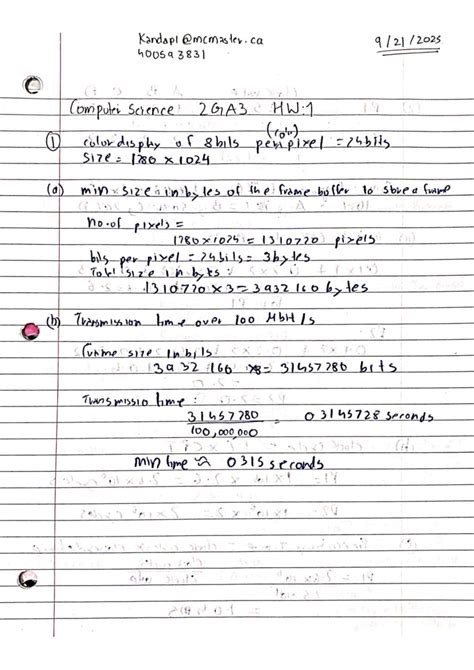 Kandapl@mcmaster.ca
400593831
9/21/2025
Computer Science 2GA3 HW:1
① color display of 8bits per pixel = 24bits
(color)
Size = 1280 × 1024
(a) min size in bytes of the frame buffer to store a frame
no. of pixels =
1280 × 1024 = 1310720 pixels
bits per pixel = 24bits = 3bytes
Total size in bytes:
1310720 × 3 = 3932160 bytes
(b) Transmission time over 100 Mbit/s
Frame size in bits
3932160 ×8 = 31457280 bits
Transmissio time:
31457280
100,000,000
= 0.3145728 seconds
min time ≈ 0.315 seconds